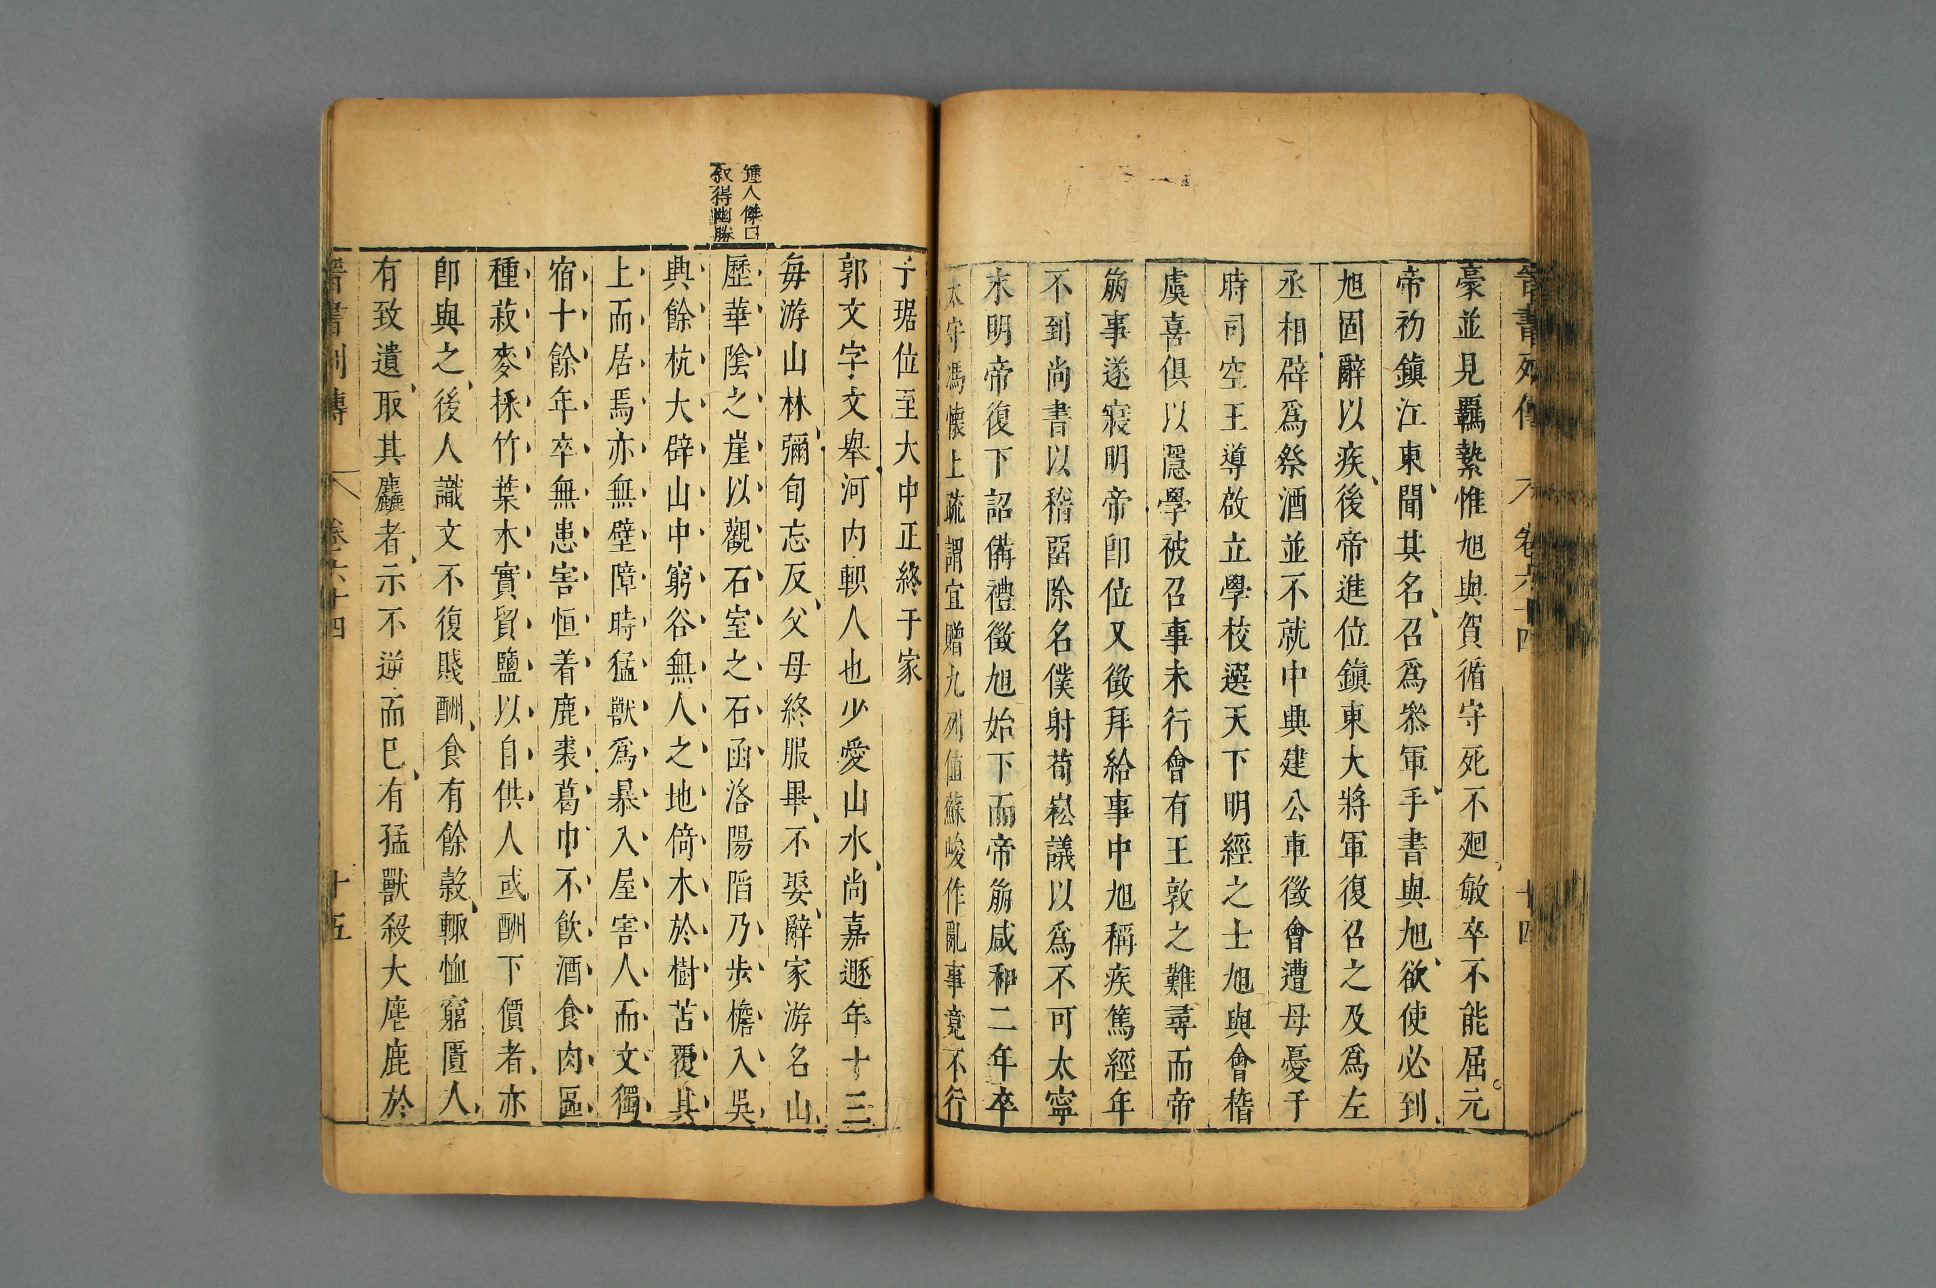 晉書列傳 卷六十四 十四
豪並見羈縶惟旭與賀循守死不廻敏卒不能屈元
帝初鎮江東聞其名召爲叅軍手書與旭欲使必到
旭固辭以疾後帝進位鎮東大將軍復召之及爲左
丞相辟爲祭酒並不就中興建公車徵會遭母憂于
時司空王導啟立學校選天下明經之士旭與會稽
虞喜俱以隱學被召事未行會有王敦之難尋而帝
崩事遂寢明帝卽位又徵拜給事中旭稱疾篤經年
不到尚書以稽畱除名僕射荀崧議以爲不可太寧
末明帝復下詔備禮徵旭始下而帝崩咸和二年卒
太守馮懷上疏謂宜贈九列值蘇峻作亂事竟不行
子琚位至大中正終于家
郭文字文舉河内軹人也少愛山水尚嘉遯年十三
每游山林彌旬忘反父母終服畢不娶辭家游名山
歷華陰之崖以觀石室之石函洛陽陷乃步檐入吳
興餘杭大辟山中窮谷無人之地倚木於樹苫覆其
上而居焉亦無壁障時猛獸爲暴入屋害人而文獨
宿十餘年卒無患害恒着鹿裘葛巾不飲酒食肉區
種菽麥採竹葉木實貿鹽以自供人或酬下價者亦
卽與之後人識文不復賤酬食有餘穀輒恤窮匱人
有致遺取其麤者示不逆而巳有猛獸殺大麀鹿於
晉書列傳 卷六十四 十五
鍾人傑曰
叙得幽勝